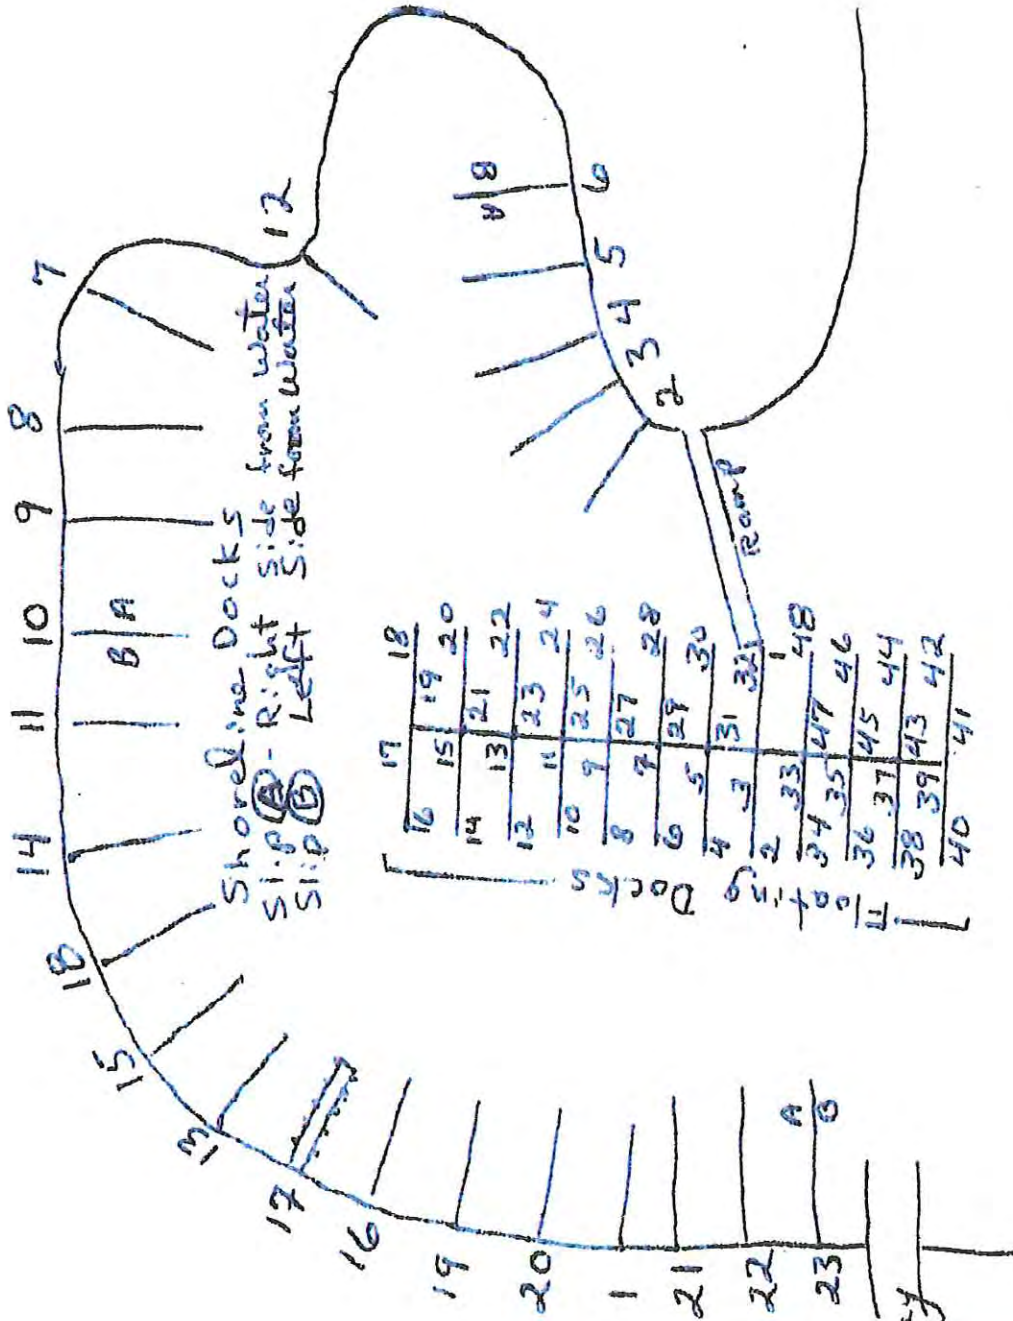 7
8
9
10
B A
11
14
18
15
13
17
16
19
20
1
21
22
23
A
B
12
Shoreline Docks
Slip A - Right Side from water
Slip B Left Side from water
A B
6
5
4
3
2
Ramp
Floating Docks
17
16 15 19 18
14 13 21 20
12 11 23 22
10 9 25 24
8 7 27 26
6 5 29 28
4 3 31 30
2 32
1
33 48
34 35 47 46
36 37 45 44
38 39 43 42
40 41